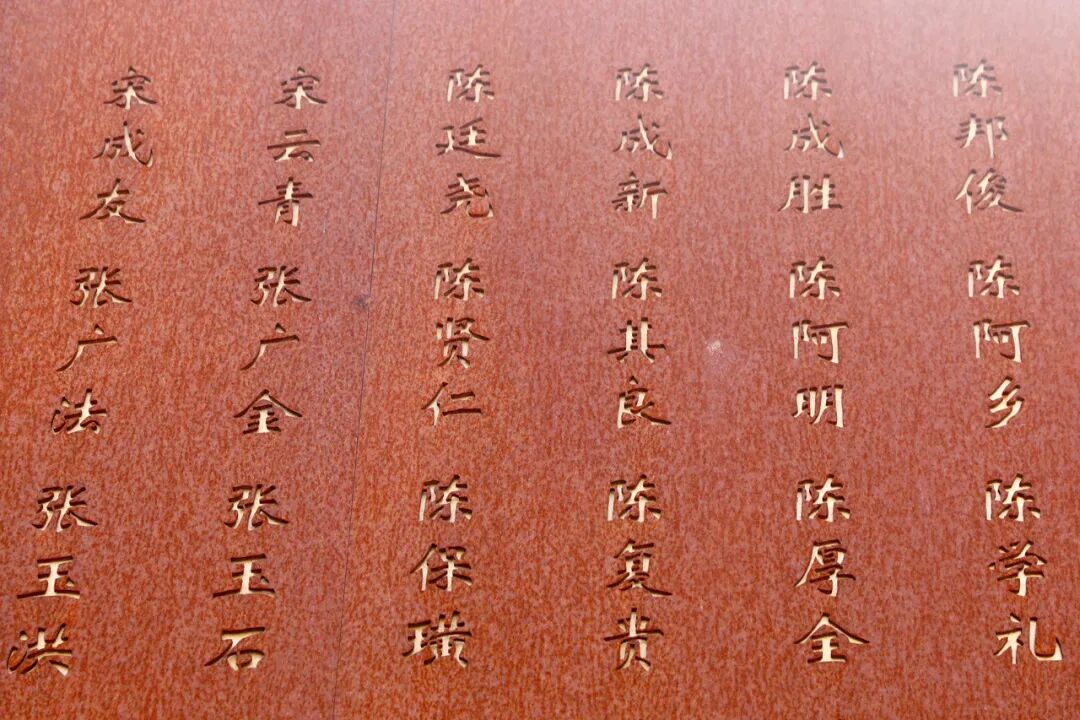 陈邦俊
陈成胜
陈成新
陈廷尧
宋云青
宋成友
陈阿乡
陈阿明
陈其良
陈贤仁
张广金
张广法
陈学礼
陈厚全
陈复贵
陈保璜
张玉石
张玉洪